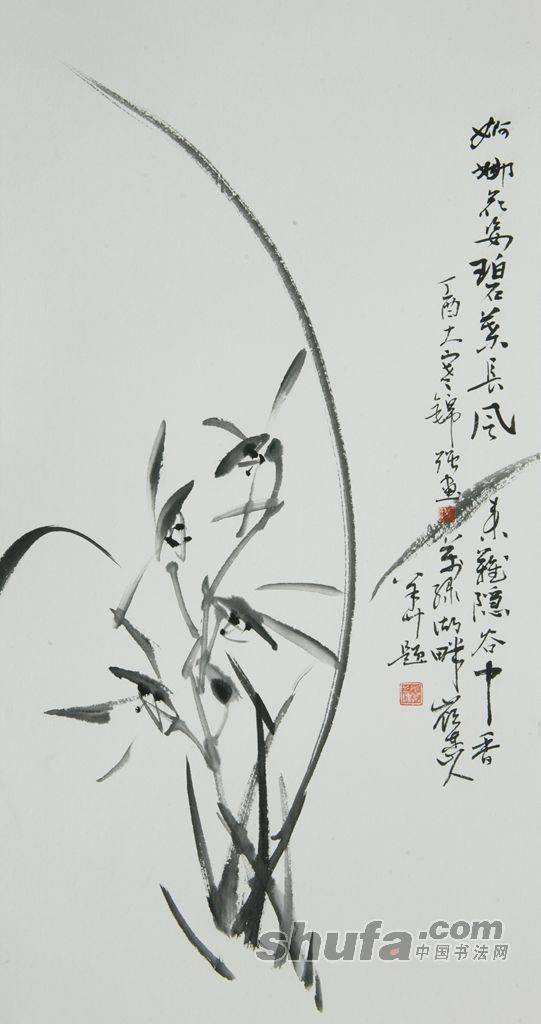 婀娜花姿碧叶长风来难隐谷中香
丁酉大寒锦强画万绿湖畔
半山题
shufa.com
中国书法网